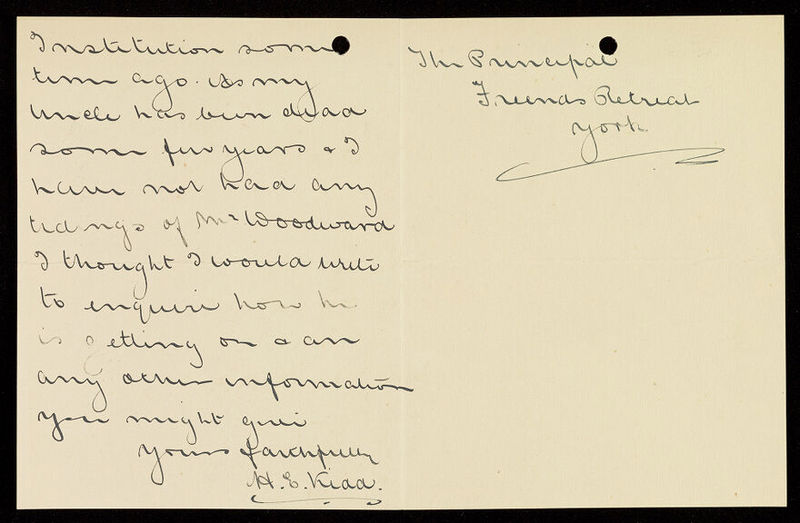 Institution some
time ago. As my
Uncle has been dead
some few years & I
have not had any
tidings of Mr Woodward
I thought I would write
to enquire how he
is getting on & an
any other information
you might give
Yours faithfully
H. E. Kidd.
The Principal
Friends Retreat
York